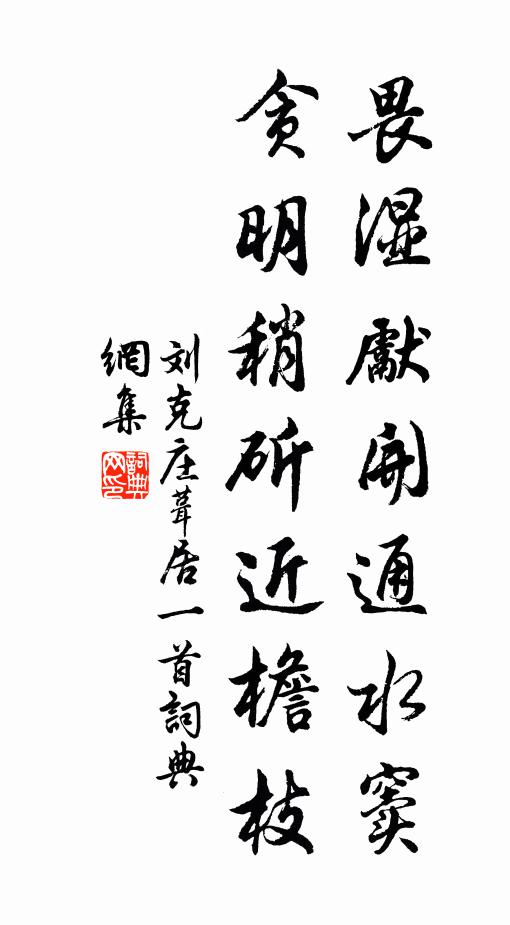 畏湿獻開通水窦
贪明稍斫近檐枝
刘克庄葺居一首詞典
網集
詞典
网印